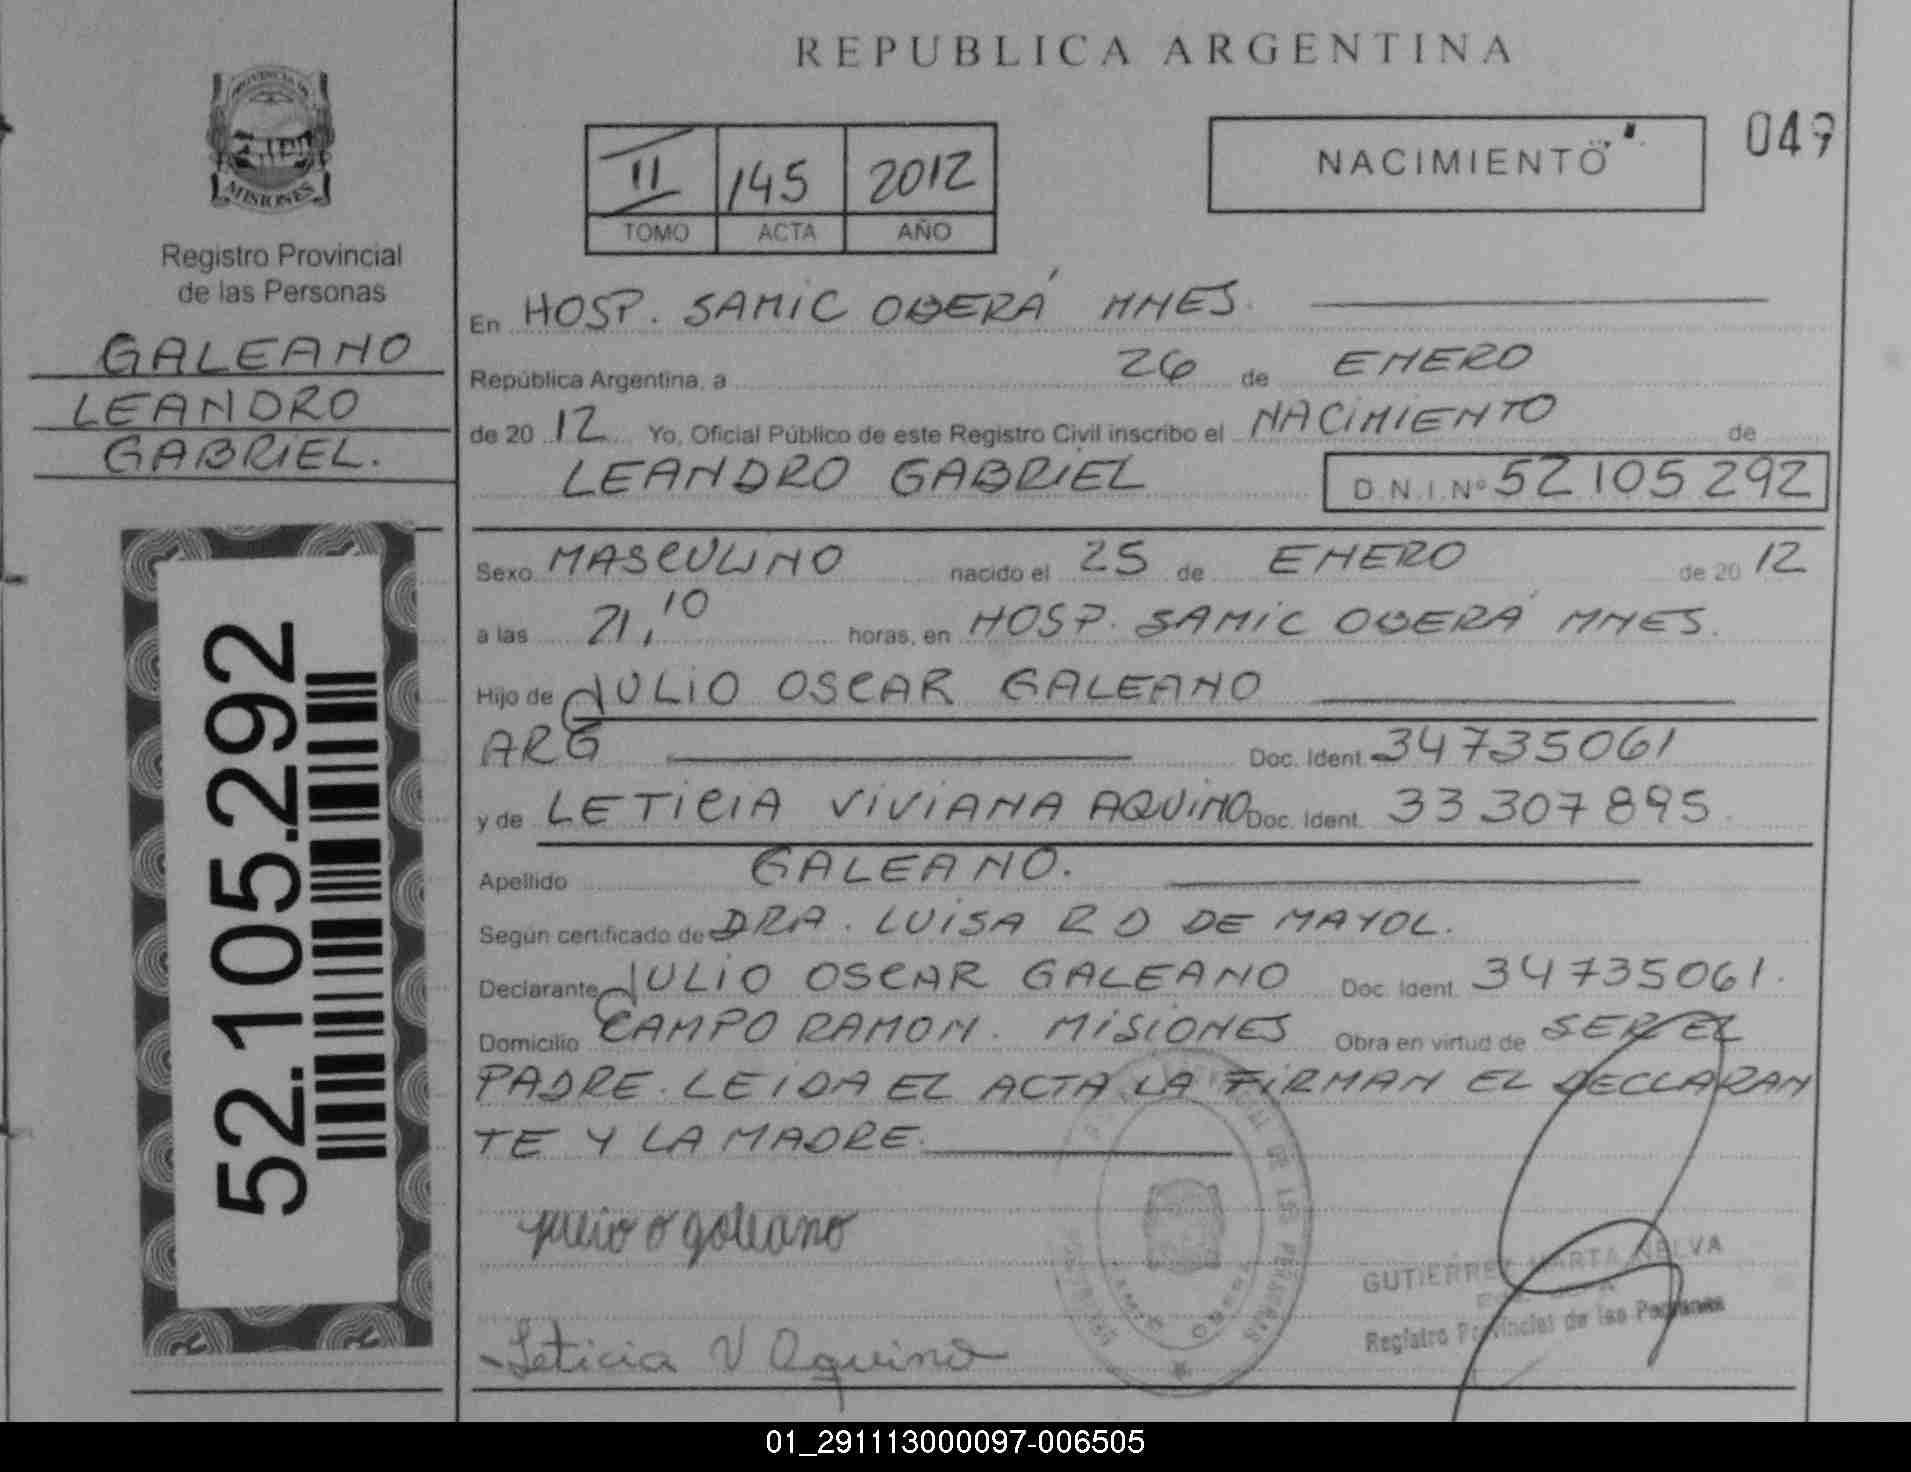 REPUBLICA ARGENTINA
PROVINCIA DE
MISIONES
Registro Provincial
de las Personas
GALEANO
LEANDRO
GABRIEL.
52.105.292
II 145 2012
TOMO ACTA AÑO
NACIMIENTO
049
En HOSP. SAMIC OBERÁ MNES.
República Argentina, a 26 de ENERO
de 2012 Yo, Oficial Público de este Registro Civil inscribo el NACIMIENTO de
LEANDRO GABRIEL D.N.I.Nº 52105292
Sexo MASCULINO nacido el 25 de ENERO de 2012
a las 21,10 horas, en HOSP. SAMIC OBERÁ MNES.
Hijo de JULIO OSCAR GALEANO
ARG Doc. Ident. 34735061
y de LETICIA VIVIANA AQUINO Doc. Ident. 33307895.
Apellido GALEANO.
Según certificado de DRA. LUISA R D DE MAYOL.
Declarante JULIO OSCAR GALEANO Doc. Ident. 34735061.
Domicilio CAMPO RAMON. MISIONES Obra en virtud de SER EL
PADRE. LEIDA EL ACTA LA FIRMAN EL DECLARAN
TE Y LA MADRE.
julio o galeano
Leticia V Aquino
GUTIERREZ MARTA NELVA
Registro Provincial de las Personas
01_291113000097-006505